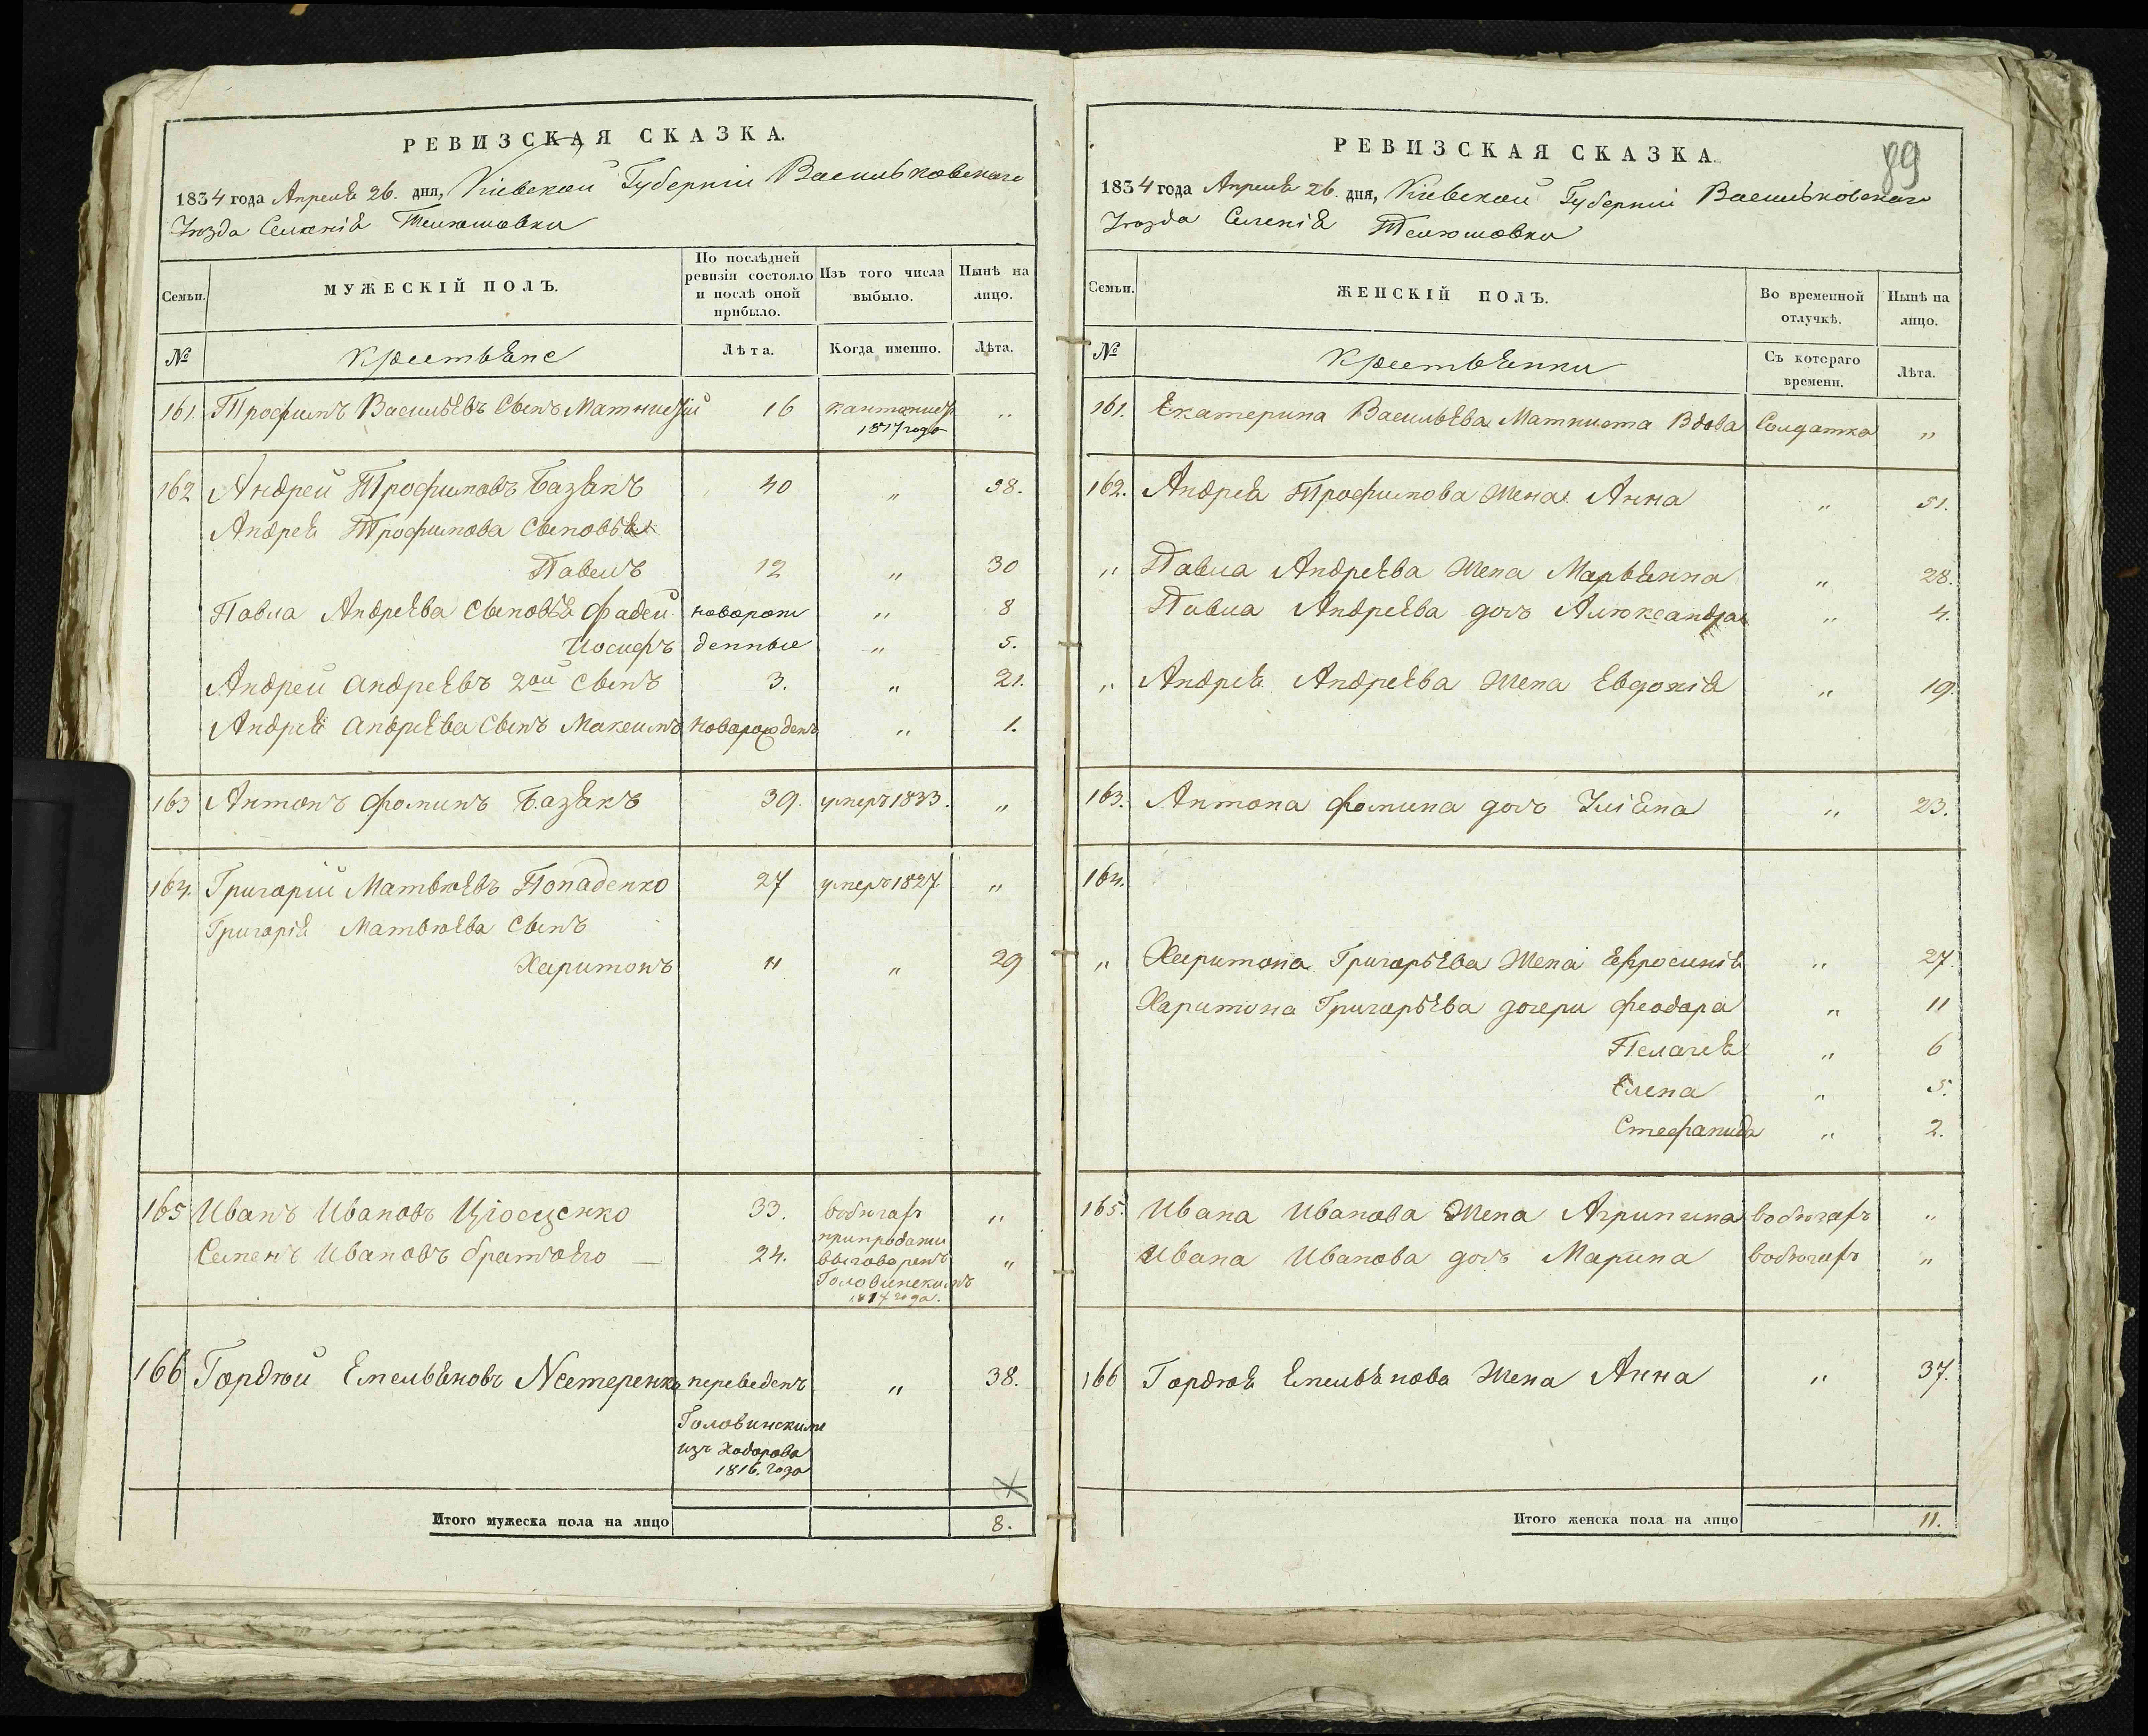 РЕВИЗСКАЯ СКАЗКА.
1834 года Апреля 26. дня, Кіевской Губерніи Васильковскаго
Уѣзда Селенія Телюшовки
Семьи.
МУЖЕСКІЙ ПОЛЪ.
По послѣдней ревизіи состояло и послѣ оной прибыло.
Изъ того числа выбыло.
Нынѣ на лицо.
№
Крестьяне
Лѣта.
Когда именно.
Лѣта.
161. Трофимъ Васильевъ Сынъ 16 1817 года „
162 Андрей Трофимовъ Базякъ 40 „ 58.
Андрея Трофимова Сыновья
Павелъ 12 „ 30
Павла Андреева Сыновья Фадей новорож „ 8
Иосифъ денные „ 5.
Андрей Андреевъ 2ой Сынъ 3. „ 21.
Андрея Андреева Сынъ Максимъ новорожденъ „ 1.
163 Антонъ Фоминъ Базякъ 39. умеръ 1833. „
164. Григорій Матвѣевъ Попаденко 27 умеръ 1827 „
Григорія Матвѣева Сынъ
Харитонъ 11 „ 29
165 Иванъ Ивановъ 33. „
Семенъ Ивановъ братъ его — 24. выговоренъ „
Головинскимъ
1817 года.
166 Гордѣй Емельяновъ Нестеренко переведенъ „ 38.
Головинскимъ
изъ Ходорова
1816. года
Итого мужеска пола на лицо 8.
РЕВИЗСКАЯ СКАЗКА.
89
1834 года Апреля 26. дня, Кіевской Губерніи Васильковскаго
Уѣзда Селенія Телюшовки
Семьи.
ЖЕНСКІЙ ПОЛЪ.
Во временной отлучкѣ.
Нынѣ на лицо.
№
Крестьянки
Съ котораго времени.
Лѣта.
161. Екатерина Васильева Вдова Солдатка „
162. Андрея Трофимова Жена Анна „ 51.
„ Павла Андреева Жена Марьянна „ 28.
Павла Андреева дочь Алюксандра „ 4.
„ Андрея Андреева Жена Евдокія „ 19.
163. Антона Фомина дочь Уліяна „ 23.
164.
„ Харитона Григорьева Жена Ефросинія „ 27.
Харитона Григорьева дочери Феодора „ 11
Пелагея „ 6
Елена „ 5.
Стефанида „ 2.
165. Ивана Иванова Жена Агрипина „
Ивана Иванова дочь Марина „
166 Гордѣя Емельянова Жена Анна „ 37.
Итого женска пола на лицо 11.